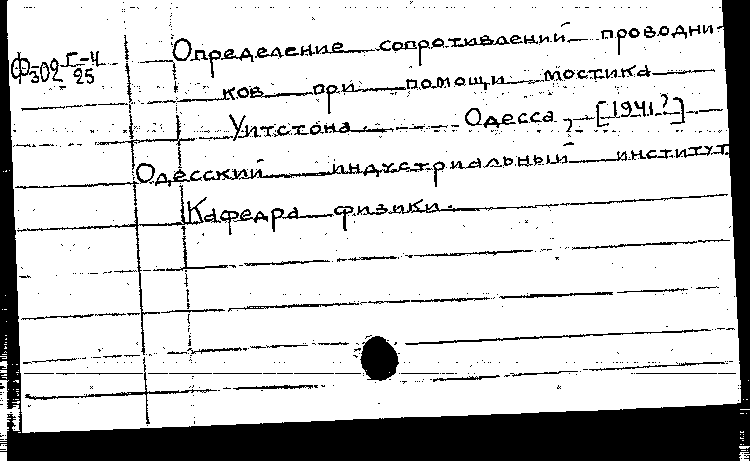 Ф-302 Г-4 Определение сопротивлений проводни-
25
ков при помощи мостика
Уитстона. Одесса, [1941?]
Одесский индустриальный институт
Кафедра физики.